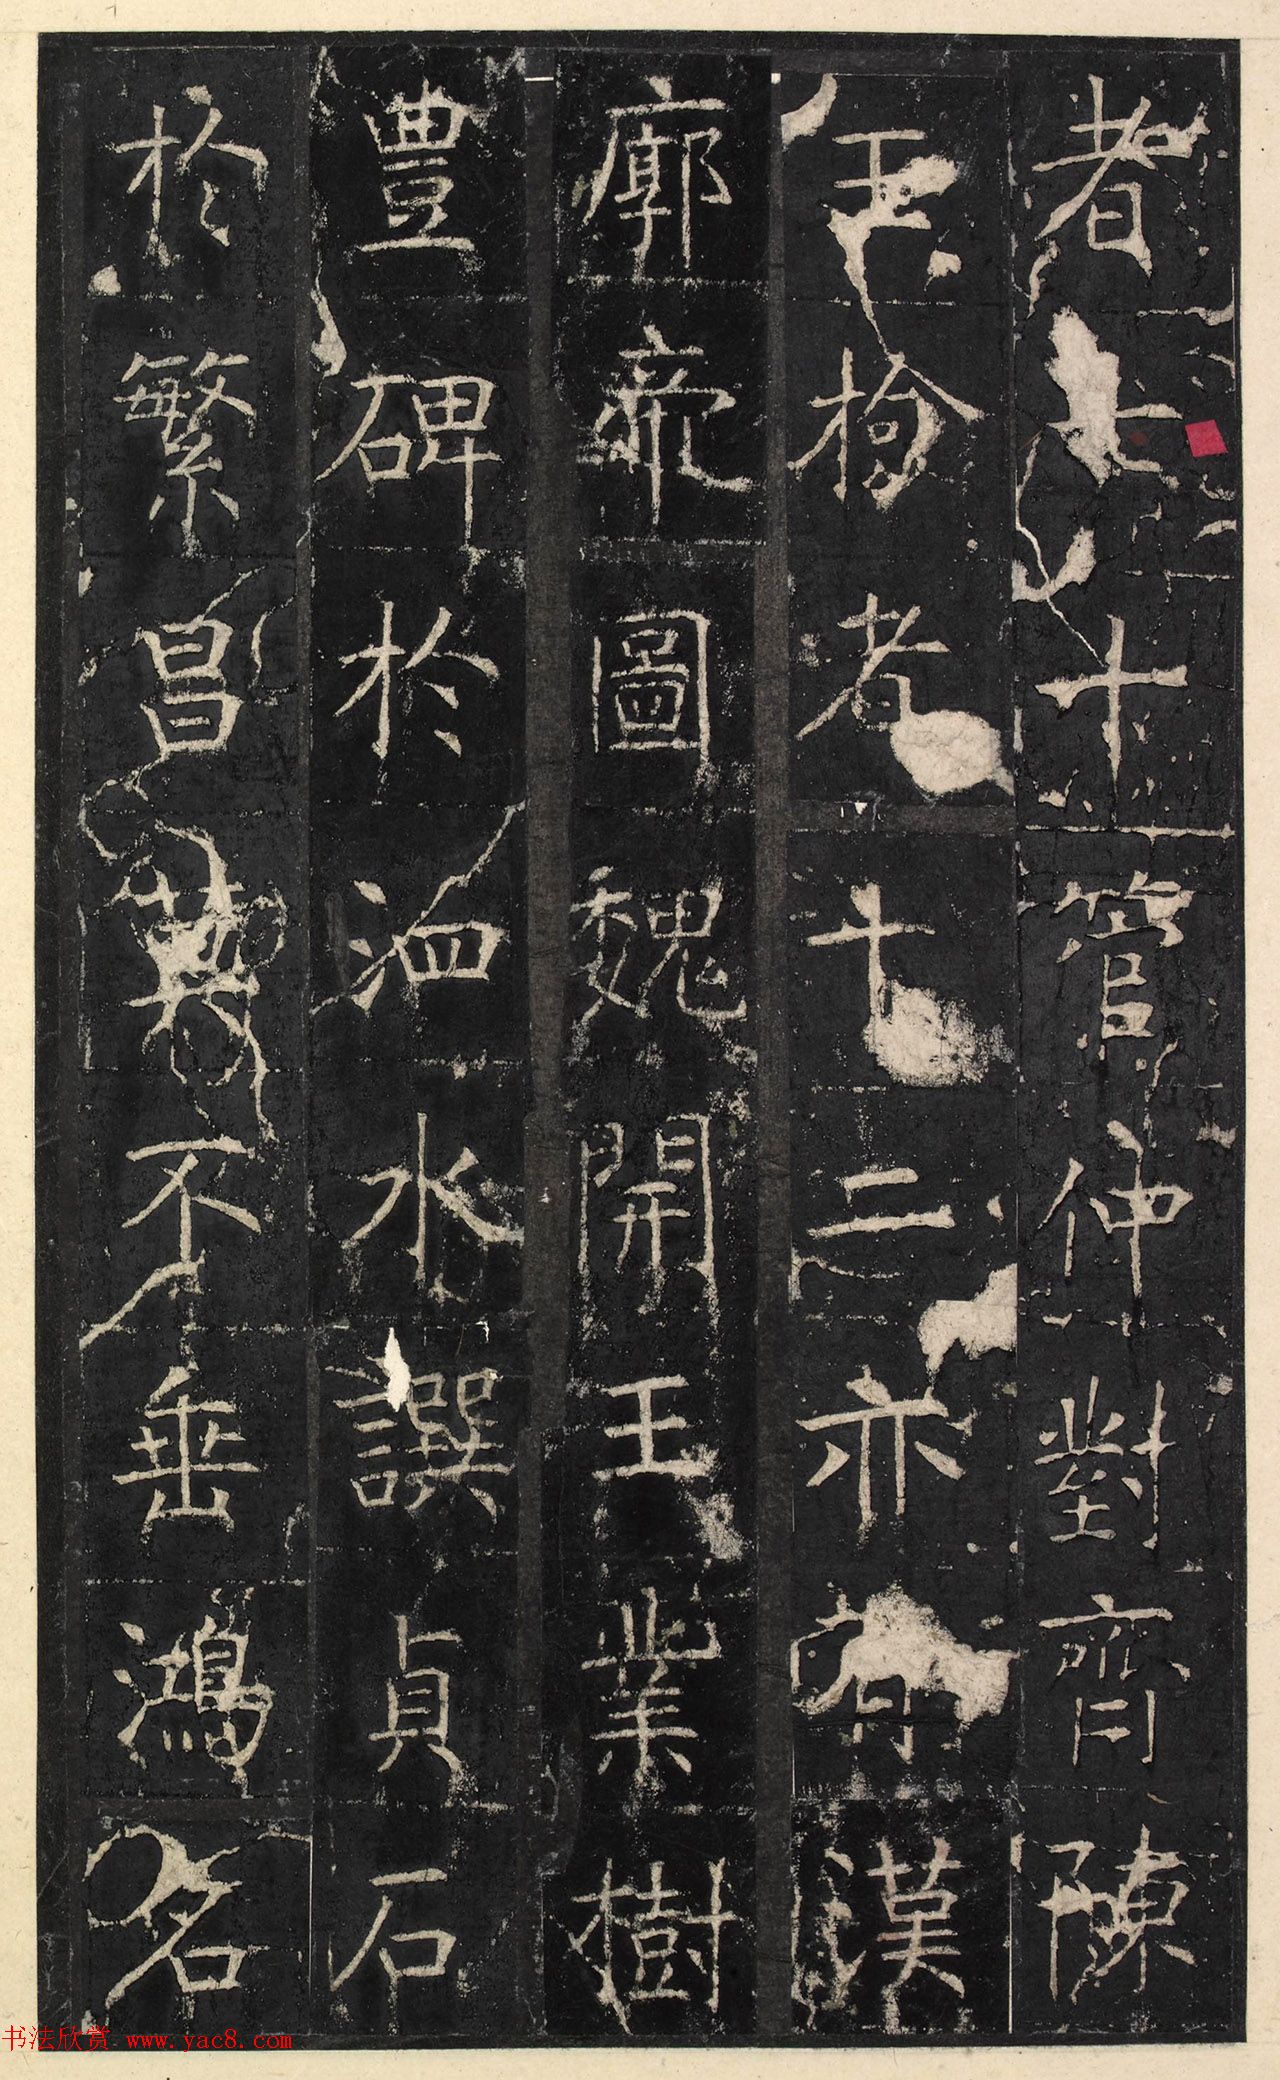 者七十管仲對齊陳
玉檢者十二亦漢
廓帝圖魏開王業樹
豊碑於泗水譔貞石
於繁昌莫不垂鴻名
书法欣赏 www.yac8.com